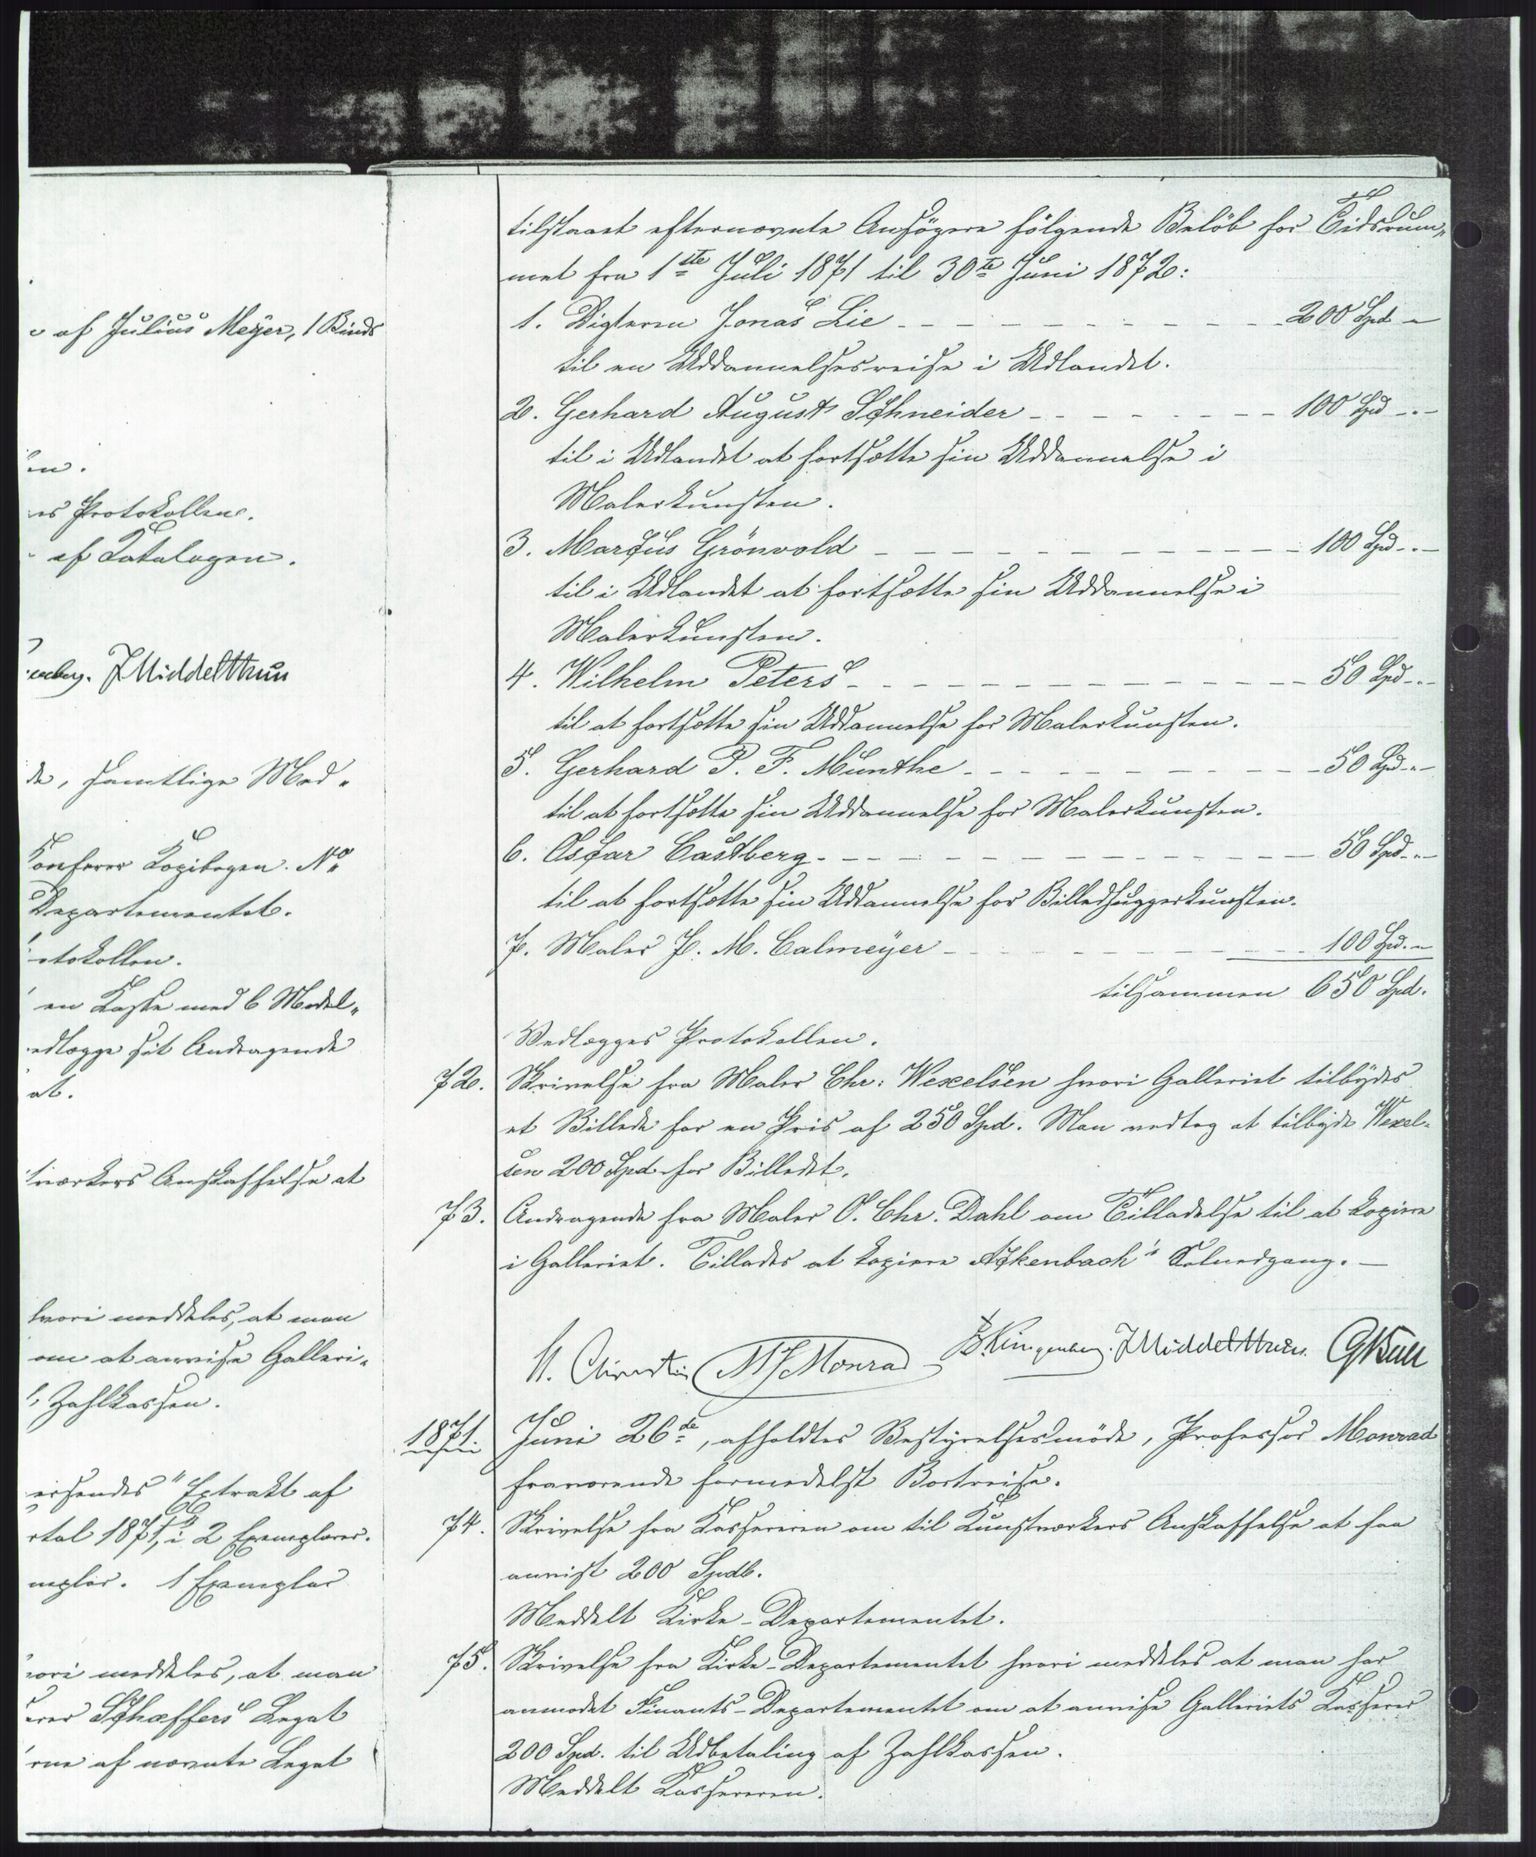 af Julius Meyer, 1 Binds
en.
es Protokollen.
af Katalogen.
J Middelthun
de, samtlige Med-
Konferer Kopibogen. No
Departementet.
otokollen.
en Kasse med 6 Model-
edlægge sit Andragende
at.
tværkers Anskaffelse at
hvori meddeles, at man
om at anvise Galleri-
Zahlkassen.
ersendes "Extrakt af
rtal 1871, i 2 Exemplarer.
mplar. 1 Exemplar
vori meddeles, at man
erer Schæffers Legat
rne af nævnte Legat
tilstaaet efternævnte Ansøgere følgende Beløb for Tidsrum-
met fra 1ste Juli 1871 til 30te Juni 1872:
1. Digteren Jonas Lie 200 Spd -
til en Uddannelsesreise i Udlandet.
2. Gerhard August Schneider 100 Spd -
til i Udlandet at fortsætte sin Uddannelse i
Malerkunsten.
3. Marcus Grönvold 100 Spd -
til i Udlandet at fortsætte sin Uddannelse i
Malerkunsten.
4. Wilhelm Peters 50 Spd -
til at fortsætte sin Uddannelse for Malerkunsten.
5. Gerhard P. F. Munthe 50 Spd -
til at fortsætte sin Uddannelse for Malerkunsten.
6. Oscar Castberg 50 Spd -
til at fortsætte sin Uddannelse for Billedhuggerkunsten.
7. Maler J. M. Calmeyer 100 Spd. -
tilsammen 650 Spd.
Vedlægges Protokollen.
72. Skrivelse fra Maler Chr: Wexelsen hvori Galleriet tilbydes
et Billede for en Pris af 250 Spd. Man vedtog at tilbyde Wexel-
sen 200 Spd for Billedet.
73. Andragende fra Maler O. Chr. Dahl om Tilladelse til at kopiere
i Galleriet. Tillades at kopiere Ackenbach's Solnedgang. -
H. Christie M J Monrad Klingenberg. J Middelthun. G Bull
1871. Juni 26de, afholdtes Bestyrelsesmøde, Professor Monrad
fraværende formedelst Bortreise.
74. Skrivelse fra Kassereren om til Kunstværkers Anskaffelse at faa
anvist 200 Spdl.
Meddelt Kirke-Departementet.
75. Skrivelse fra Kirke-Departementet hvori meddeles at man har
anmodet Finants-Departementet om at anvise Galleriets Kasserer
200 Spd. til Udbetaling af Zahlkassen.
Meddelt Kassereren.